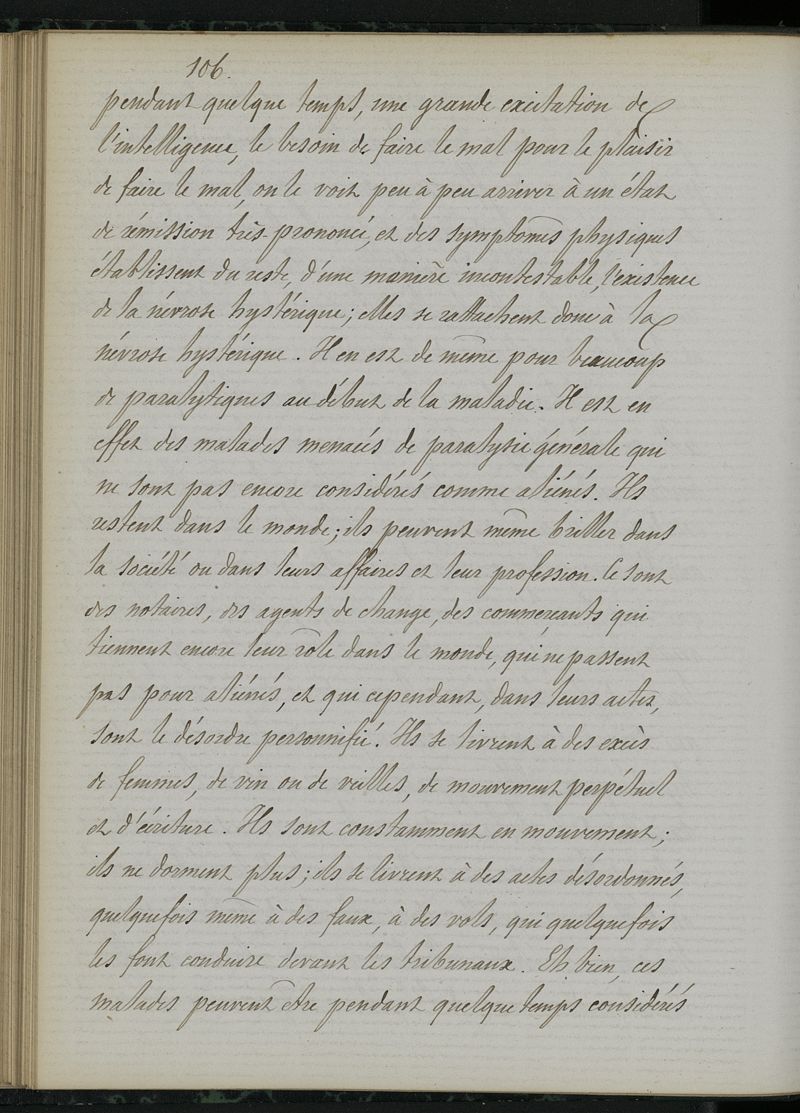 106.
pendant quelque temps, une grande excitation de
l'intelligence, le besoin de faire le mal pour le plaisir
de faire le mal, on le voit peu à peu arriver à un état
de rémission très-prononcé, et des symptômes physiques
établissent du reste, d'une manière incontestable, l'existence
de la névrose hystérique; elles se rattachent donc à la
névrose hystérique. Il en est de même pour beaucoup
de paralytiques au début de la maladie. Il est en
effet des malades menacés de paralysie générale qui
ne sont pas encore considérés comme aliénés. Ils
restent dans le monde; ils peuvent même briller dans
la société ou dans leurs affaires et leur profession. Ce sont
des notaires, des agents de change, des commerçants qui
tiennent encore leur rôle dans le monde, qui ne passent
pas pour aliénés, et qui cependant, dans leurs actes,
sont le désordre personnifié. Ils se livrent à des excès
de femmes, de vin ou de veilles, de mouvement perpétuel
et d'écriture. Ils sont constamment en mouvement;
ils ne dorment plus; ils se livrent à des actes désordonnés,
quelquefois même à des faux, à des vols, qui quelquefois
les font conduire devant les tribunaux. Eh bien, ces
malades peuvent être pendant quelque temps considérés